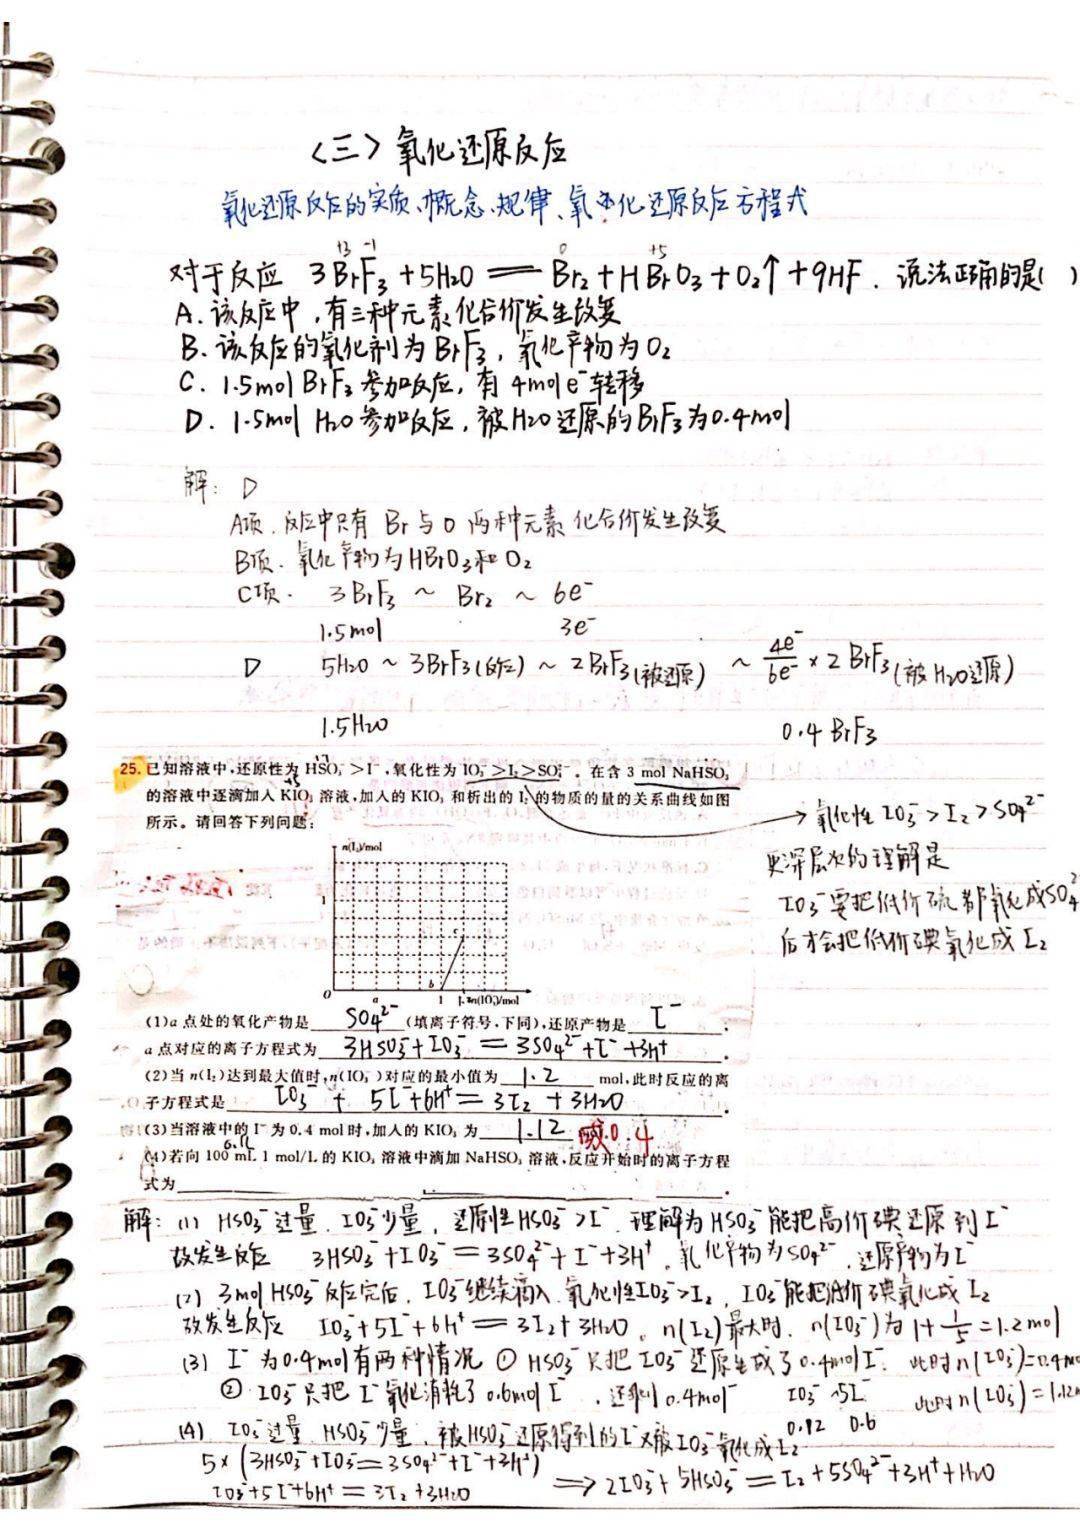 〈三〉氧化还原反应
氧化还原反应的实质、概念、规律、氧化还原反应方程式
+3 -1 0 +5
对于反应 3BrF₃+5H₂O═Br₂+HBrO₃+O₂↑+9HF. 说法正确的是( )
A. 该反应中,有三种元素化合价发生改变
B. 该反应的氧化剂为BrF₃, 氧化产物为O₂
C. 1.5mol BrF₃参加反应, 有4mol e⁻转移
D. 1.5mol H₂O参加反应, 被H₂O还原的BrF₃为0.4mol
解: D
A项. 反应中只有 Br 与 O 两种元素化合价发生改变
B项. 氧化产物为HBrO₃和O₂
C项. 3BrF₃ ~ Br₂ ~ 6e⁻
1.5mol 3e⁻
D 5H₂O ~ 3BrF₃(反应) ~ 2BrF₃(被还原) ~ 4e⁻/6e⁻ × 2BrF₃(被H₂O还原)
1.5H₂O 0.4 BrF₃
25. 已知溶液中,还原性为 HSO₃⁻>I⁻,氧化性为 IO₃⁻>I₂>SO₄²⁻。在含 3 mol NaHSO₃
的溶液中逐滴加入 KIO₃ 溶液,加入的 KIO₃ 和析出的 I₂ 的物质的量的关系曲线如图
所示。请回答下列问题:
→ 氧化性 IO₃⁻>I₂>SO₄²⁻
更深层次的理解是
IO₃⁻要把低价硫都氧化成SO₄²
后才会把低价碘氧化成I₂
n(I₂)/mol
1
c
b
0 a 1 n(IO₃⁻)/mol
(1)a 点处的氧化产物是 SO₄²⁻ (填离子符号,下同),还原产物是 I⁻ .
a 点对应的离子方程式为 3HSO₃⁻+IO₃⁻═3SO₄²⁻+I⁻+3H⁺ .
(2)当 n(I₂)达到最大值时,n(IO₃⁻)对应的最小值为 1.2 mol,此时反应的离
子方程式是 IO₃⁻+5I⁻+6H⁺═3I₂+3H₂O .
(3)当溶液中的 I⁻ 为 0.4 mol 时,加入的 KIO₃ 为 1.12 或0.4
(4)若向 100 mL 1 mol/L 的 KIO₃ 溶液中滴加 NaHSO₃ 溶液,反应开始时的离子方程
式为 .
解: (1) HSO₃⁻过量, IO₃⁻少量, 还原性HSO₃⁻>I⁻, 理解为HSO₃⁻能把高价碘还原到I⁻
故发生反应 3HSO₃⁻+IO₃⁻═3SO₄²⁻+I⁻+3H⁺. 氧化产物为SO₄²⁻, 还原产物为I⁻
(2) 3mol HSO₃⁻反应完后, IO₃⁻继续滴入, 氧化性IO₃⁻>I₂, IO₃⁻能把低价碘氧化成 I₂
故发生反应 IO₃⁻+5I⁻+6H⁺═3I₂+3H₂O。n(I₂)最大时, n(IO₃⁻)为 1+1/5=1.2mol
(3) I⁻为0.4mol有两种情况 ① HSO₃⁻只把IO₃⁻还原生成了0.4mol I⁻. 此时n(IO₃⁻)=0.4mo
② IO₃⁻只把I⁻氧化消耗了0.6mol I⁻, 还剩0.4mol⁻ IO₃⁻~5I⁻ 此时n(IO₃⁻)=1.12m
0.12 0.6
(4) IO₃⁻过量, HSO₃⁻少量, 被HSO₃⁻还原得到的I⁻又被IO₃⁻氧化成I₂
5×(3HSO₃⁻+IO₃⁻═3SO₄²⁻+I⁻+3H⁺)
IO₃⁻+5I⁻+6H⁺═3I₂+3H₂O ⟹ 2IO₃⁻+5HSO₃⁻═I₂+5SO₄²⁻+3H⁺+H₂O